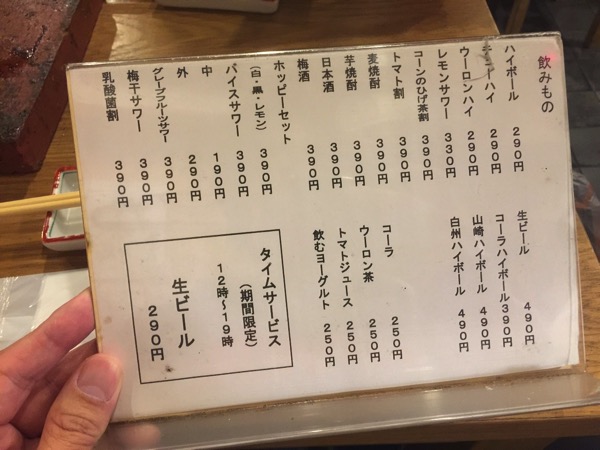 飲みもの
ハイボール 290円
チューハイ 290円
ウーロンハイ 290円
レモンサワー 330円
コーンのひげ茶割 390円
トマト割 390円
麦焼酎 390円
芋焼酎 390円
日本酒 390円
梅酒 390円
ホッピーセット
(白・黒・レモン) 390円
バイスサワー 390円
中 190円
外 290円
グレープフルーツサワー 390円
梅干サワー 390円
乳酸菌割 390円
生ビール 490円
コーラハイボール 390円
山崎ハイボール 490円
白州ハイボール 490円
コーラ 250円
ウーロン茶 250円
トマトジュース 250円
飲むヨーグルト 250円
タイムサービス
(期間限定)
12時~19時
生ビール
290円